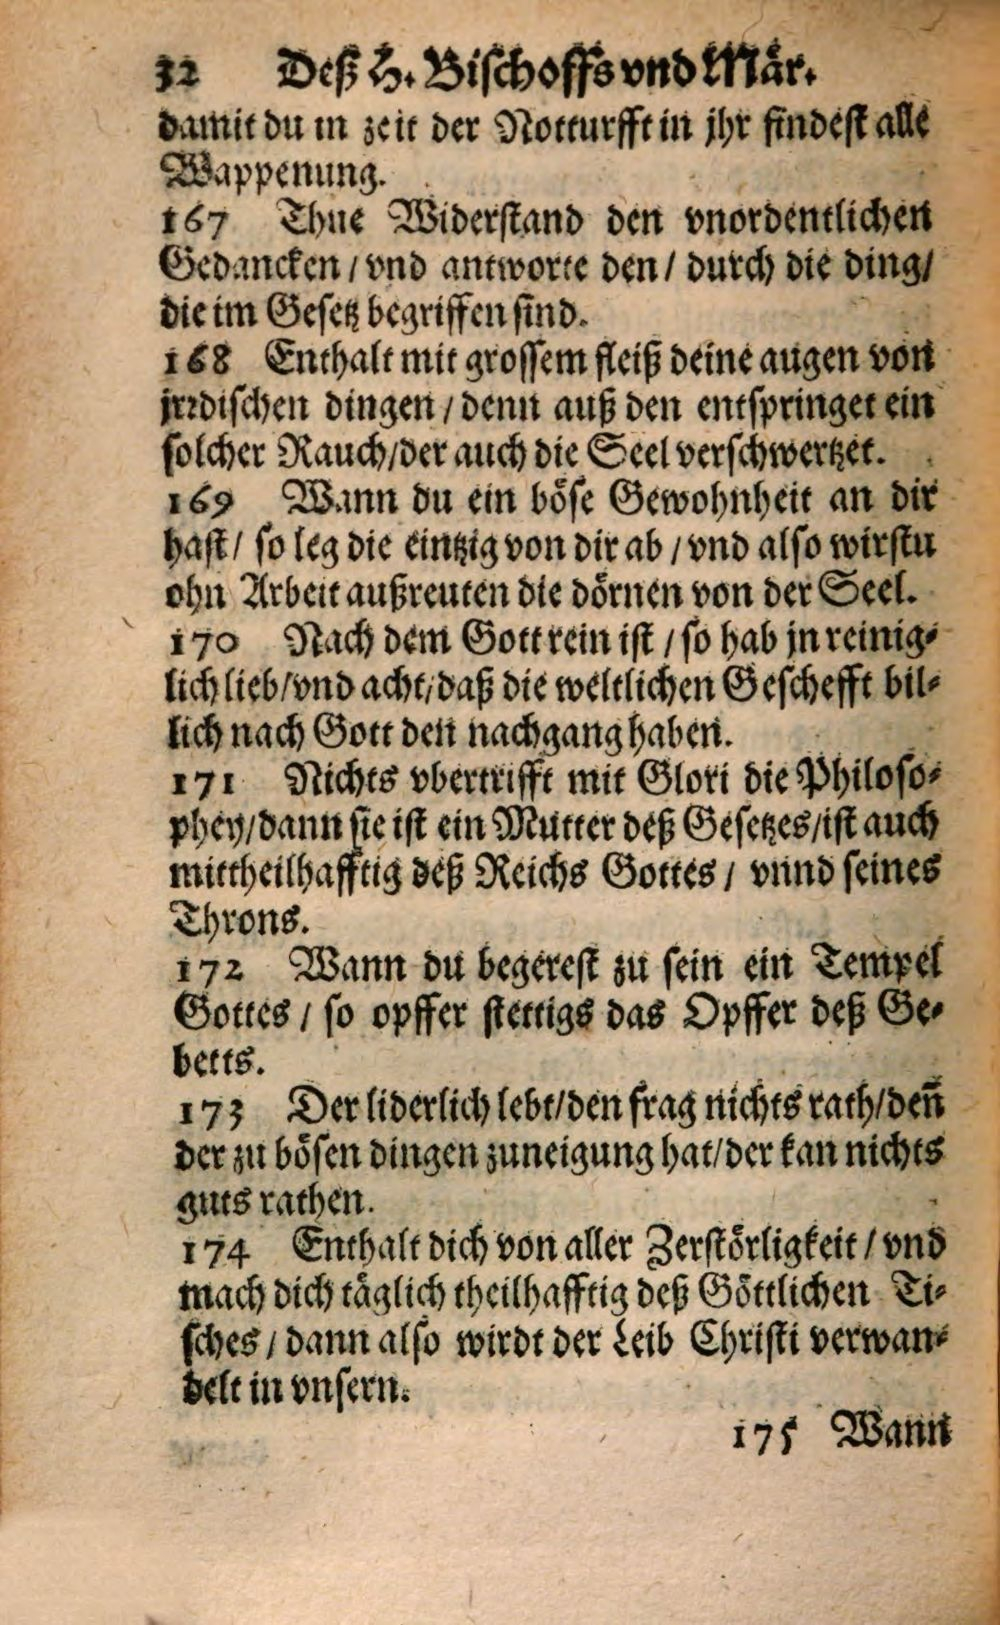 32 Deß H. Bischoffs vnd Mär.
damit du in zeit der Notturfft in jhr findest alle
Wappenung.
167 Thue Widerstand den vnordentlichen
Gedancken / vnd antworte den / durch die ding /
die im Gesetz begriffen sind.
168 Enthalt mit grossem fleiß deine augen von
jrrdischen dingen / denn auß den entspringet ein
solcher Rauch / der auch die Seel verschwertzet.
169 Wann du ein böse Gewohnheit an dir
hast / so leg die eintzig von dir ab / vnd also wirstu
ohn Arbeit außreuten die dörnen von der Seel.
170 Nach dem Gott rein ist / so hab jn reinig-
lich lieb / vnd acht / daß die weltlichen Geschefft bil-
lich nach Gott den nachgang haben.
171 Nichts vbertrifft mit Glori die Philoso-
phey / dann sie ist ein Mutter deß Gesetzes / ist auch
mittheilhafftig deß Reichs Gottes / vnnd seines
Throns.
172 Wann du begerest zu sein ein Tempel
Gottes / so opffer stettigs das Opffer deß Ge-
betts.
173 Der liderlich lebt / den frag nichts rath / deñ
der zu bösen dingen zuneigung hat / der kan nichts
guts rathen.
174 Enthalt dich von aller Zerstörligkeit / vnd
mach dich täglich theilhafftig deß Göttlichen Ti-
sches / dann also wirdt der Leib Christi verwan-
delt in vnsern.
175 Wann